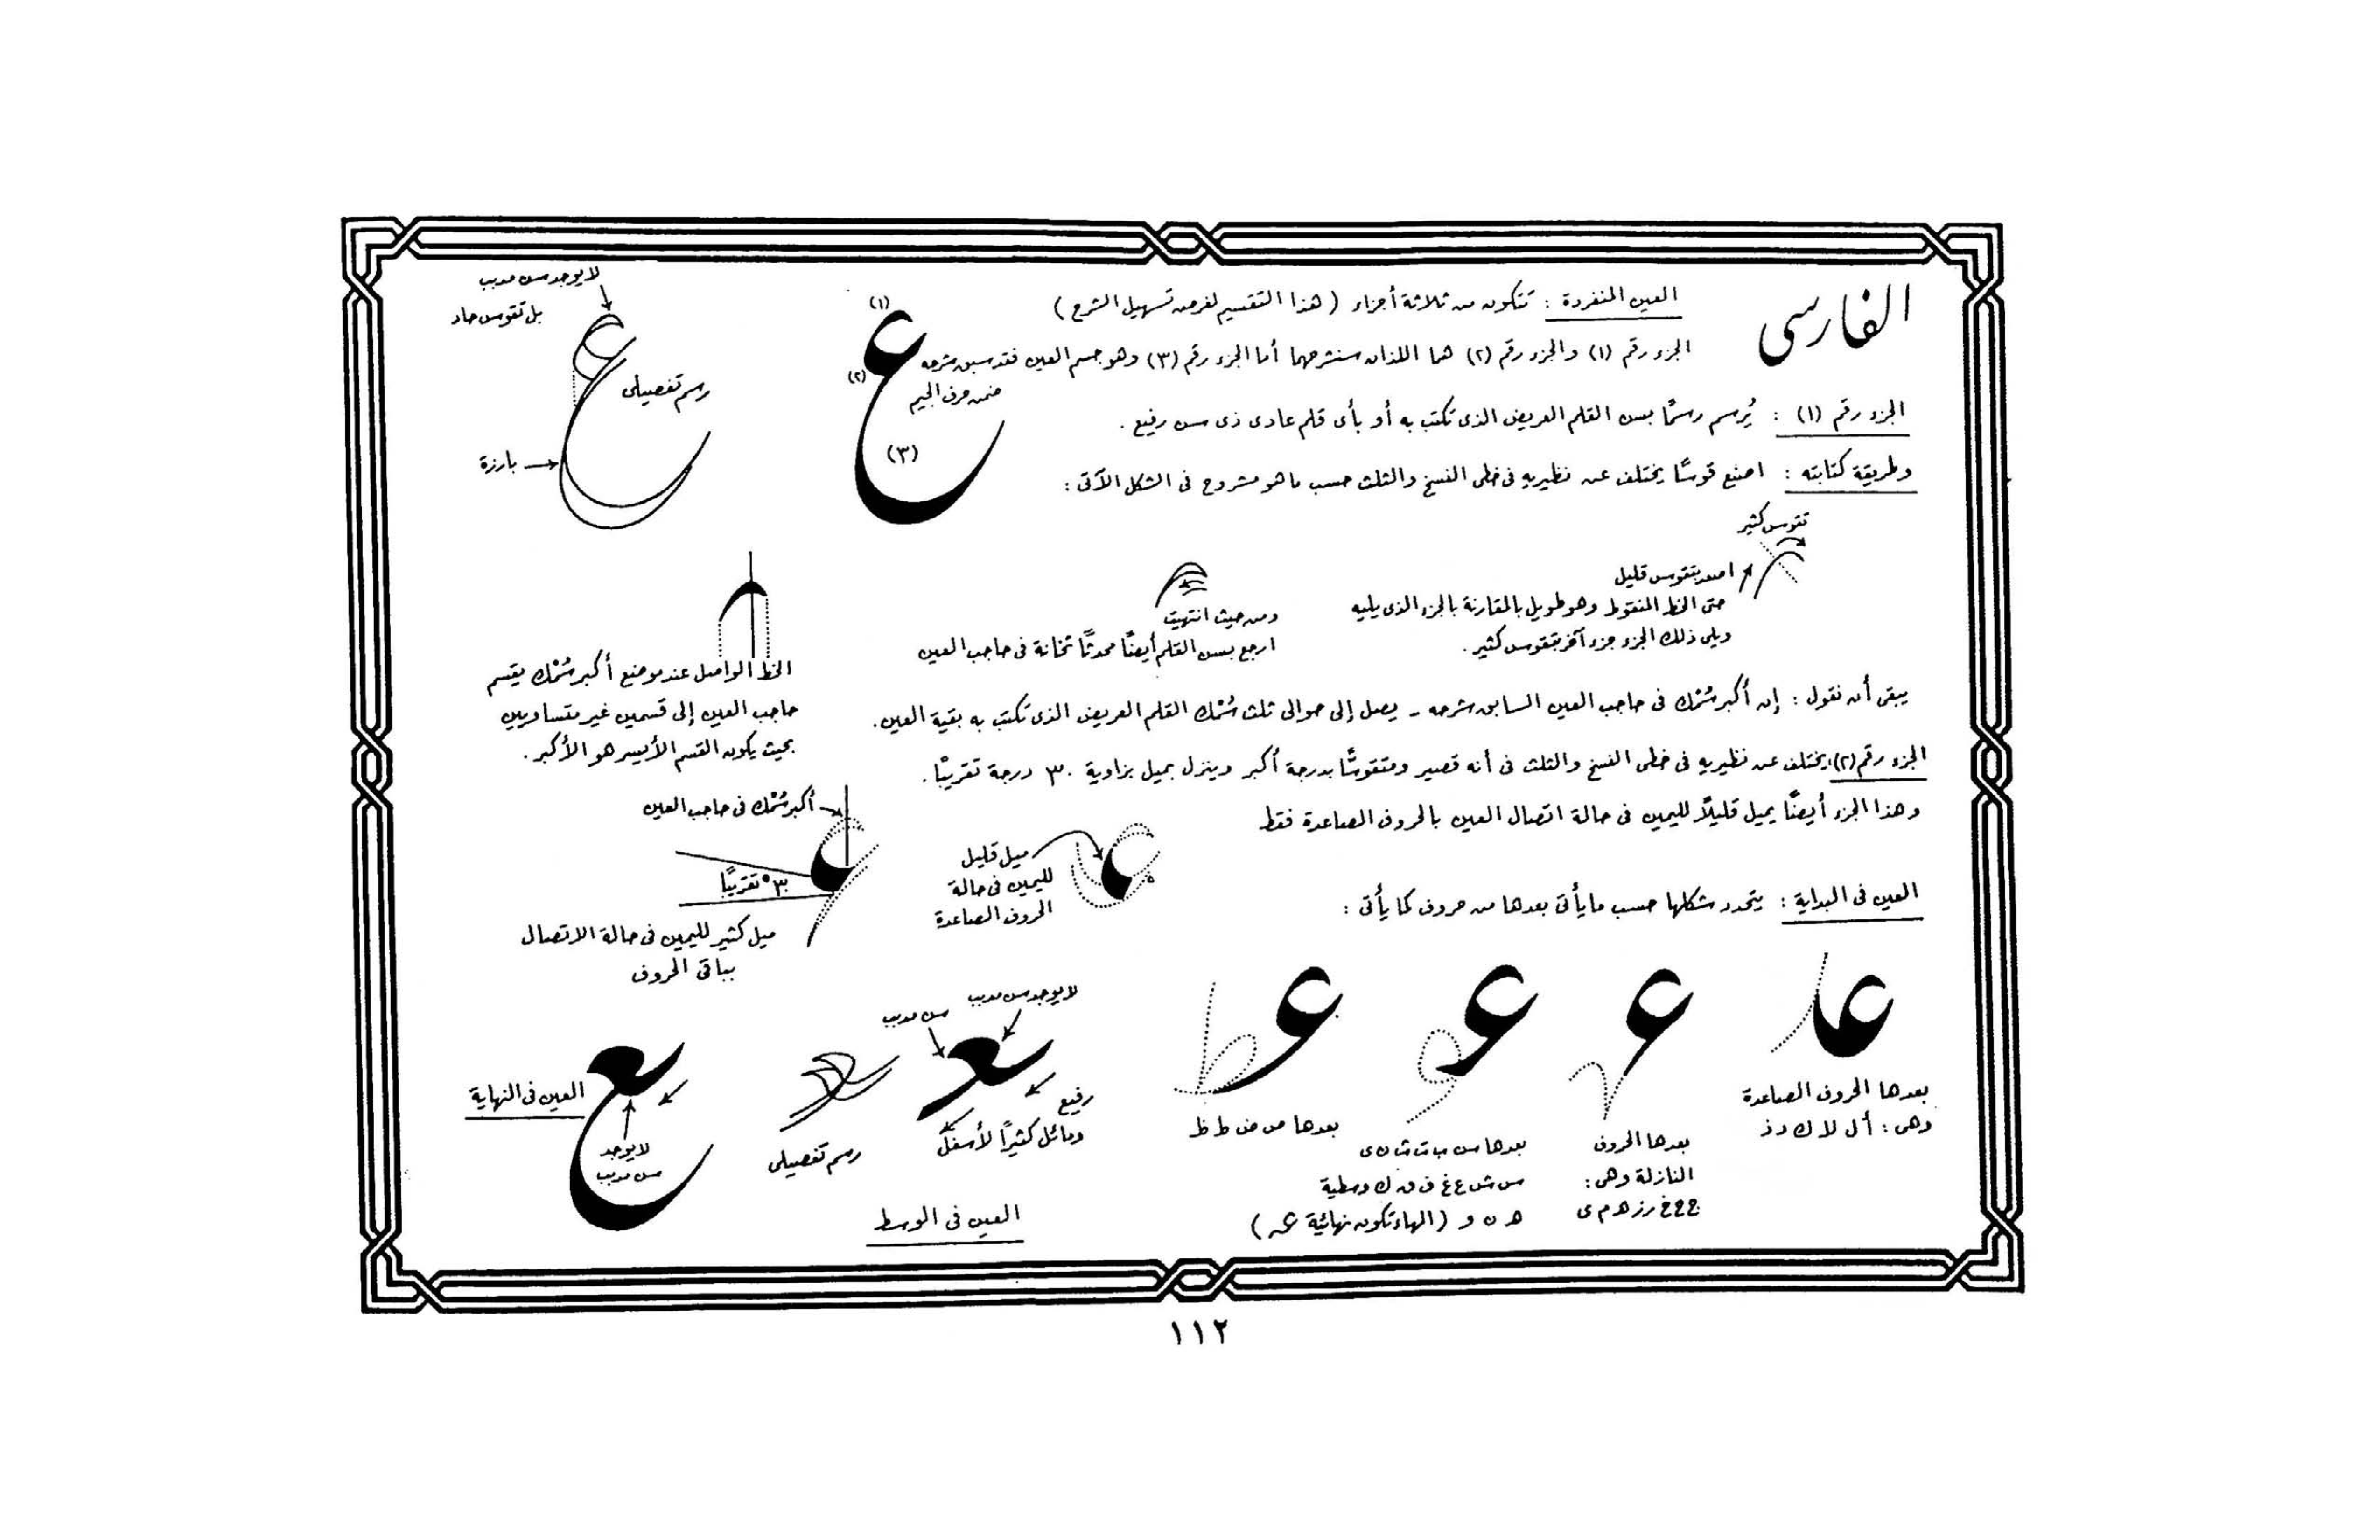 الفارسى
العين المنفردة : تتكون من ثلاثة أجزاء ( هذا التقسيم لغرض تسهيل الشرح )
الجزء رقم (١) والجزء رقم (٢) هما اللذان سنشرحهما أما الجزء رقم (٣) وهو جسم العين فقد سبق شرحه
ضمن حرف الجيم
(١)
(٢)
(٣)
لا يوجد سن مدبب
بل تقوس حاد
رسم تفصيلى
بارزة
الجزء رقم (١) : يُرسم رسمًا بسن القلم العريض الذى تكتب به أو بأى قلم عادى ذى سن رفيع .
وطريقة كتابته : اصنع قوسًا يختلف عن نظيريه فى خطى النسخ والثلث حسب ما هو مشروح فى الشكل الآتى :
تقوس كثير
اصعد بتقوس قليل
حتى الخط المنقوط وهو طويل بالمقارنة بالجزء الذى يليه
ويلى ذلك الجزء جزء آخر بتقوس كثير .
ومن حيث انتهيت
ارجع بسن القلم أيضًا محدثًا ثخانة فى حاجب العين
الخط الواصل عند موضع أكبر سُمْك يقسم
حاجب العين إلى قسمين غير متساويين
بحيث يكون القسم الأيسر هو الأكبر .
يبقى أن نقول : إن أكبر سُمْك فى حاجب العين السابق شرحه - يصل إلى حوالى ثلث سُمْك القلم العريض الذى تكتب به بقية العين .
الجزء رقم (٢) : يختلف عن نظيريه فى خطى النسخ والثلث فى أنه قصير ومتقوسًا بدرجة أكبر وينزل بميل بزاوية ٣٠ درجة تقريبًا .
وهذا الجزء أيضًا يميل قليلاً لليمين فى حالة اتصال العين بالحروف الصاعدة فقط
أكبر سُمْك فى حاجب العين
٣٠° تقريبًا
ميل كثير لليمين فى حالة الاتصال
بباقى الحروف
ميل قليل
لليمين فى حالة
الحروف الصاعدة
العين فى البداية : يتحدد شكلها حسب ما يأتى بعدها من حروف كما يأتى :
بعدها الحروف الصاعدة
وهى : أ ل لا ك د ذ
بعدها الحروف
النازلة وهى :
ج ح خ ر ز هـ م ى
بعدها س ب ت ث ن ى
س ش ع غ ف ق ك وسطية
هـ ن و ( الهاء تكون نهائية عـه )
بعدها ص ض ط ظ
لا يوجد سن مدبب
سن مدبب
رفيع
ومائل كثيرًا لأسفل
رسم تفصيلى
العين فى الوسط
العين فى النهاية
لا يوجد
سن مدبب
١١٢